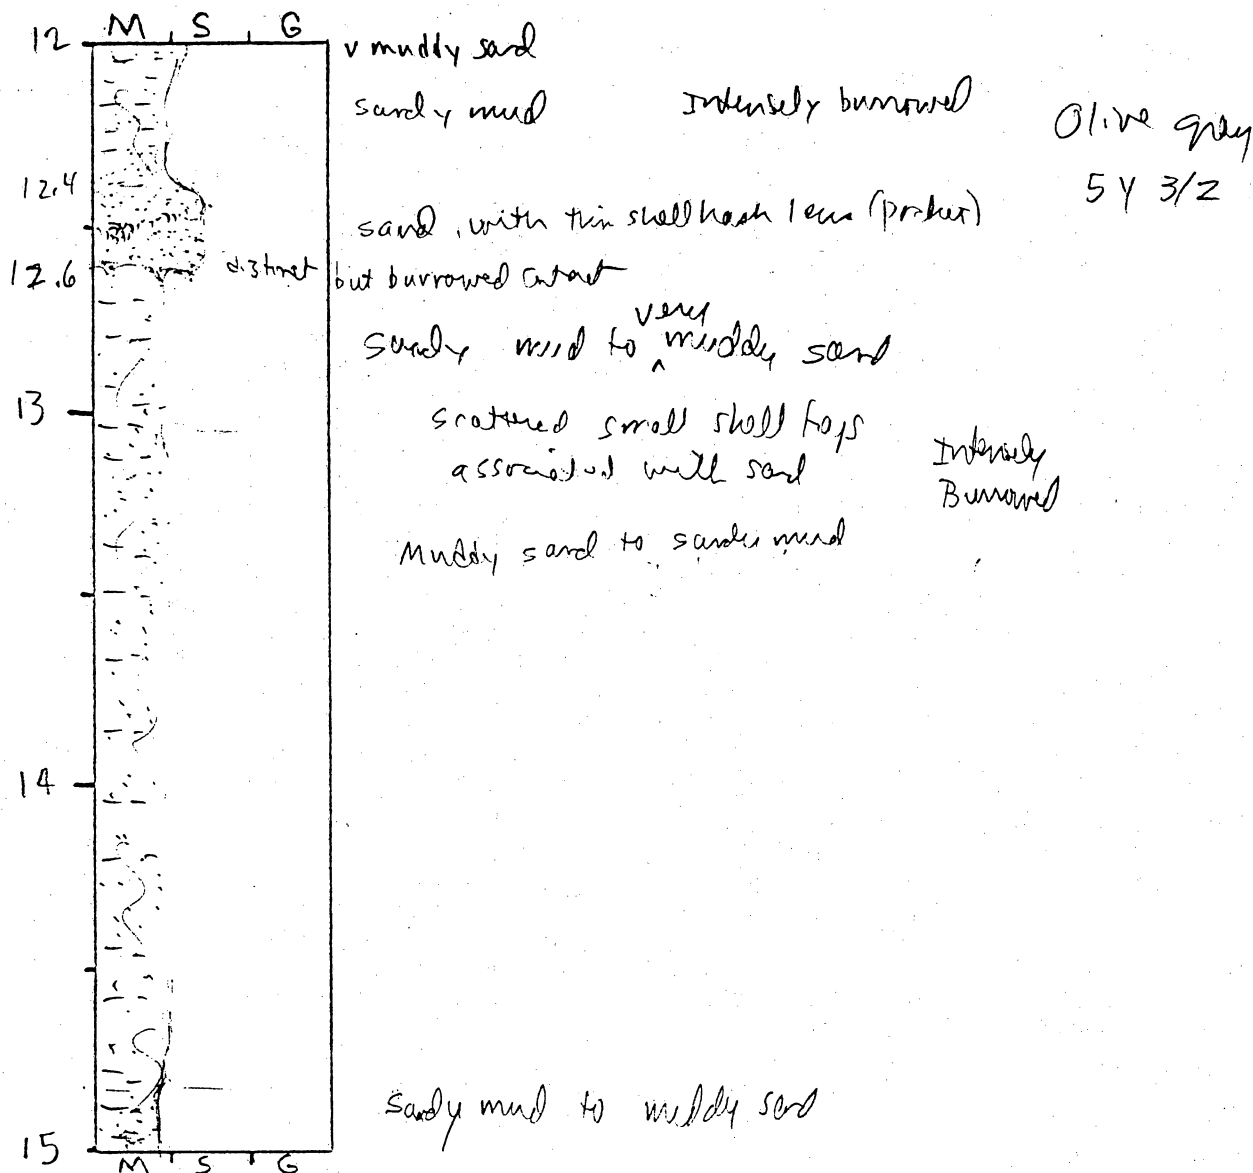 M S G
12
v muddy sand
sandy mud Intensely burrowed
Olive gray
5 Y 3/2
12.4
sand, with thin shell hash lens (pocket)
12.6 distinct but burrowed contact
very
Sandy mud to ^ muddy sand
13
scattered small shell frags
associated with sand
Intensely
Burrowed
Muddy sand to sandy mud
14
Sandy mud to muddy sand
15
M S G